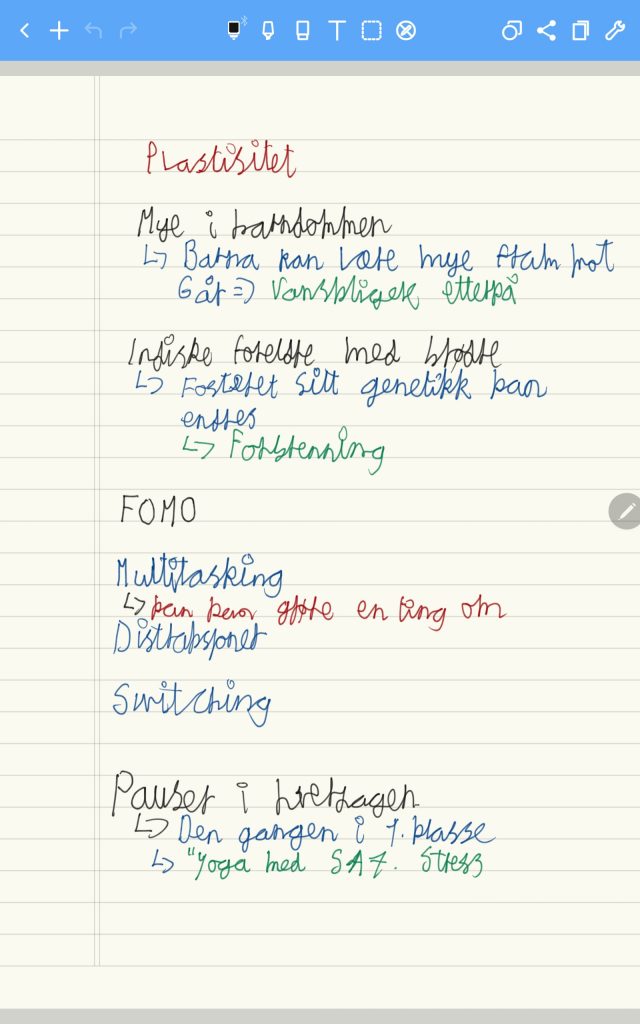 Plastisitet
Mye i barndommen
↳ Barna kan være mye fram mot
6 år => Vanskeligere etterpå
Indiske foreldre med brødre
↳ Fosteret sitt genetikk kan
endres
↳ Forskenning
FOMO
Multitasking
↳ kan bare gjøre en ting om
Distraksjoner
Switching
Pauser i hverdagen
↳ Den gangen i 7. klasse
↳ "Yoga med SAZ. Stress